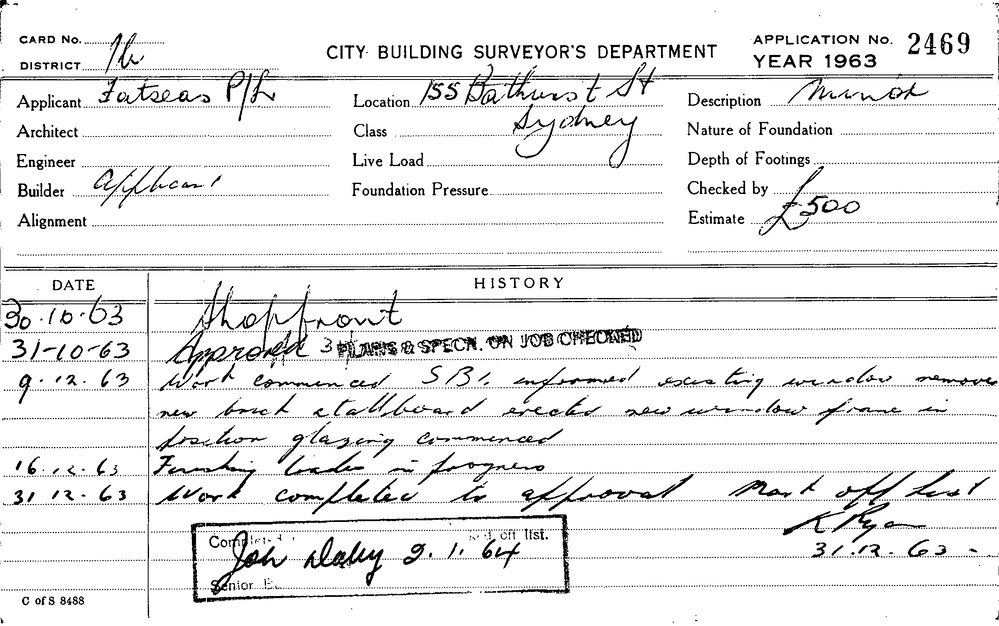 CARD No.
DISTRICT
CITY BUILDING SURVEYOR'S DEPARTMENT
APPLICATION No. 2469
YEAR 1963
Applicant Fatseas P/L
Location 155 Bathurst St
Sydney
Description
Architect
Class
Nature of Foundation
Engineer
Live Load
Depth of Footings
Builder Applicant
Foundation Pressure
Checked by
Alignment
Estimate £500
DATE
HISTORY
30.10.63 Shopfront
31-10-63 Approved 3 PLANS & SPECN. ON JOB CHECKED
9.12.63 Work commenced S.B.I. informed existing window removed
new brick stallboard erected new window frame in
position glazing commenced
16.12.63 Finishing trades in progress
31 12.63 Work completed to approval Mark off list
K Ryan
31.12.63
off list.
2.1.64
Senior
C of S 8488